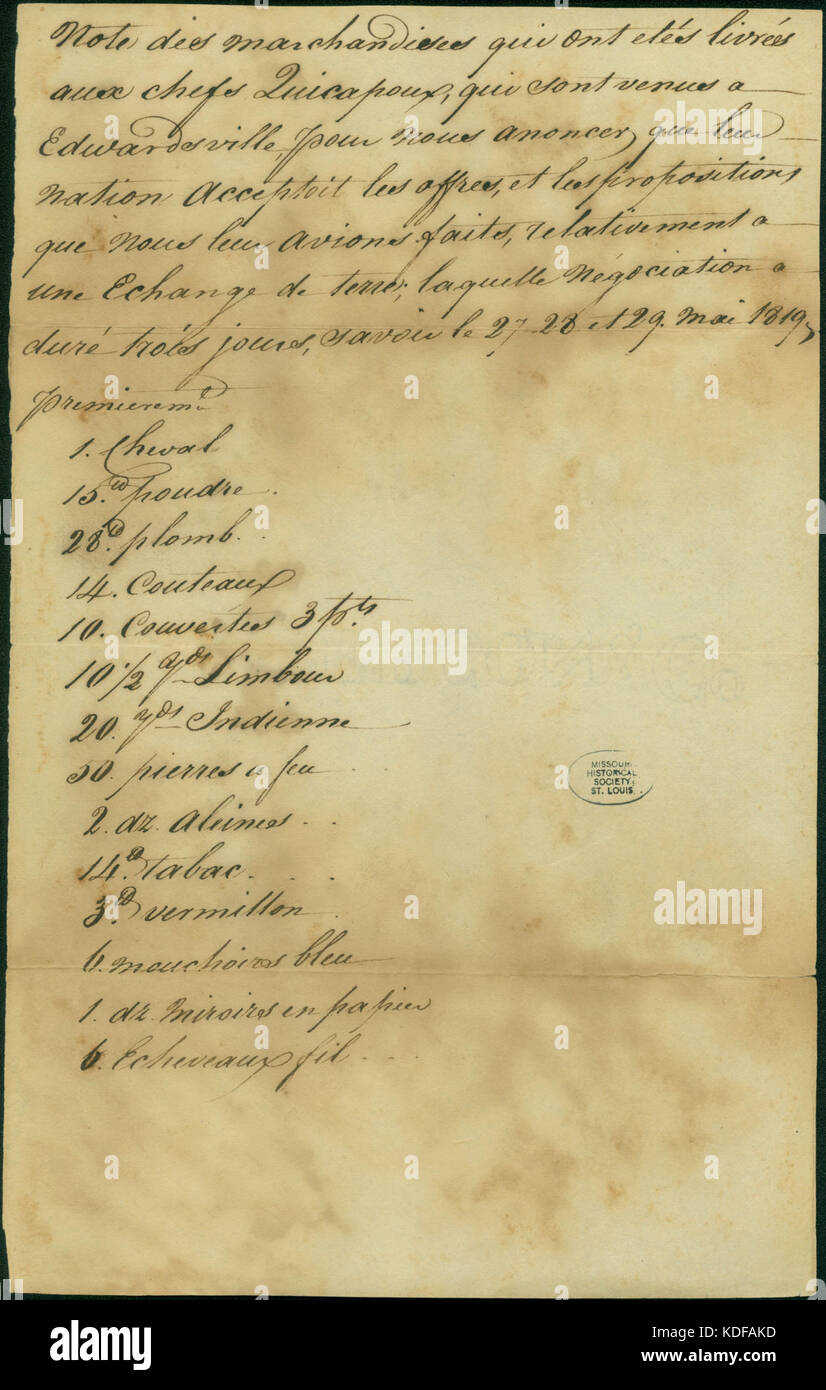 Note des marchandises qui ont etés livrées
aux chefs Quicapoux, qui sont venus a
Edwardsville, pour nous anoncer, que leur
nation acceptoit les offres, et les propositions
que nous leur avions faits, relativement a
une Echange de terre; laquelle Négociation a
duré trois jours, savoir le 27 28 et 29. mai 1819,
premierem.t
1. Cheval
15.lb poudre.
28.lb plomb.
14. Couteaux
10. Couvertes 3 pts.
10 1/2 yds Limbour
20. yds Indienne
50. pierres a feu
2. dz. aleines
14.lb tabac.
3.lb vermillon
6. mouchoirs bleu
1. dz. miroirs en papier
6. Echeveaux fil
MISSOURI
HISTORICAL
SOCIETY
ST. LOUIS
alamy
a
alamy stock photo
KDFAKD
www.alamy.com